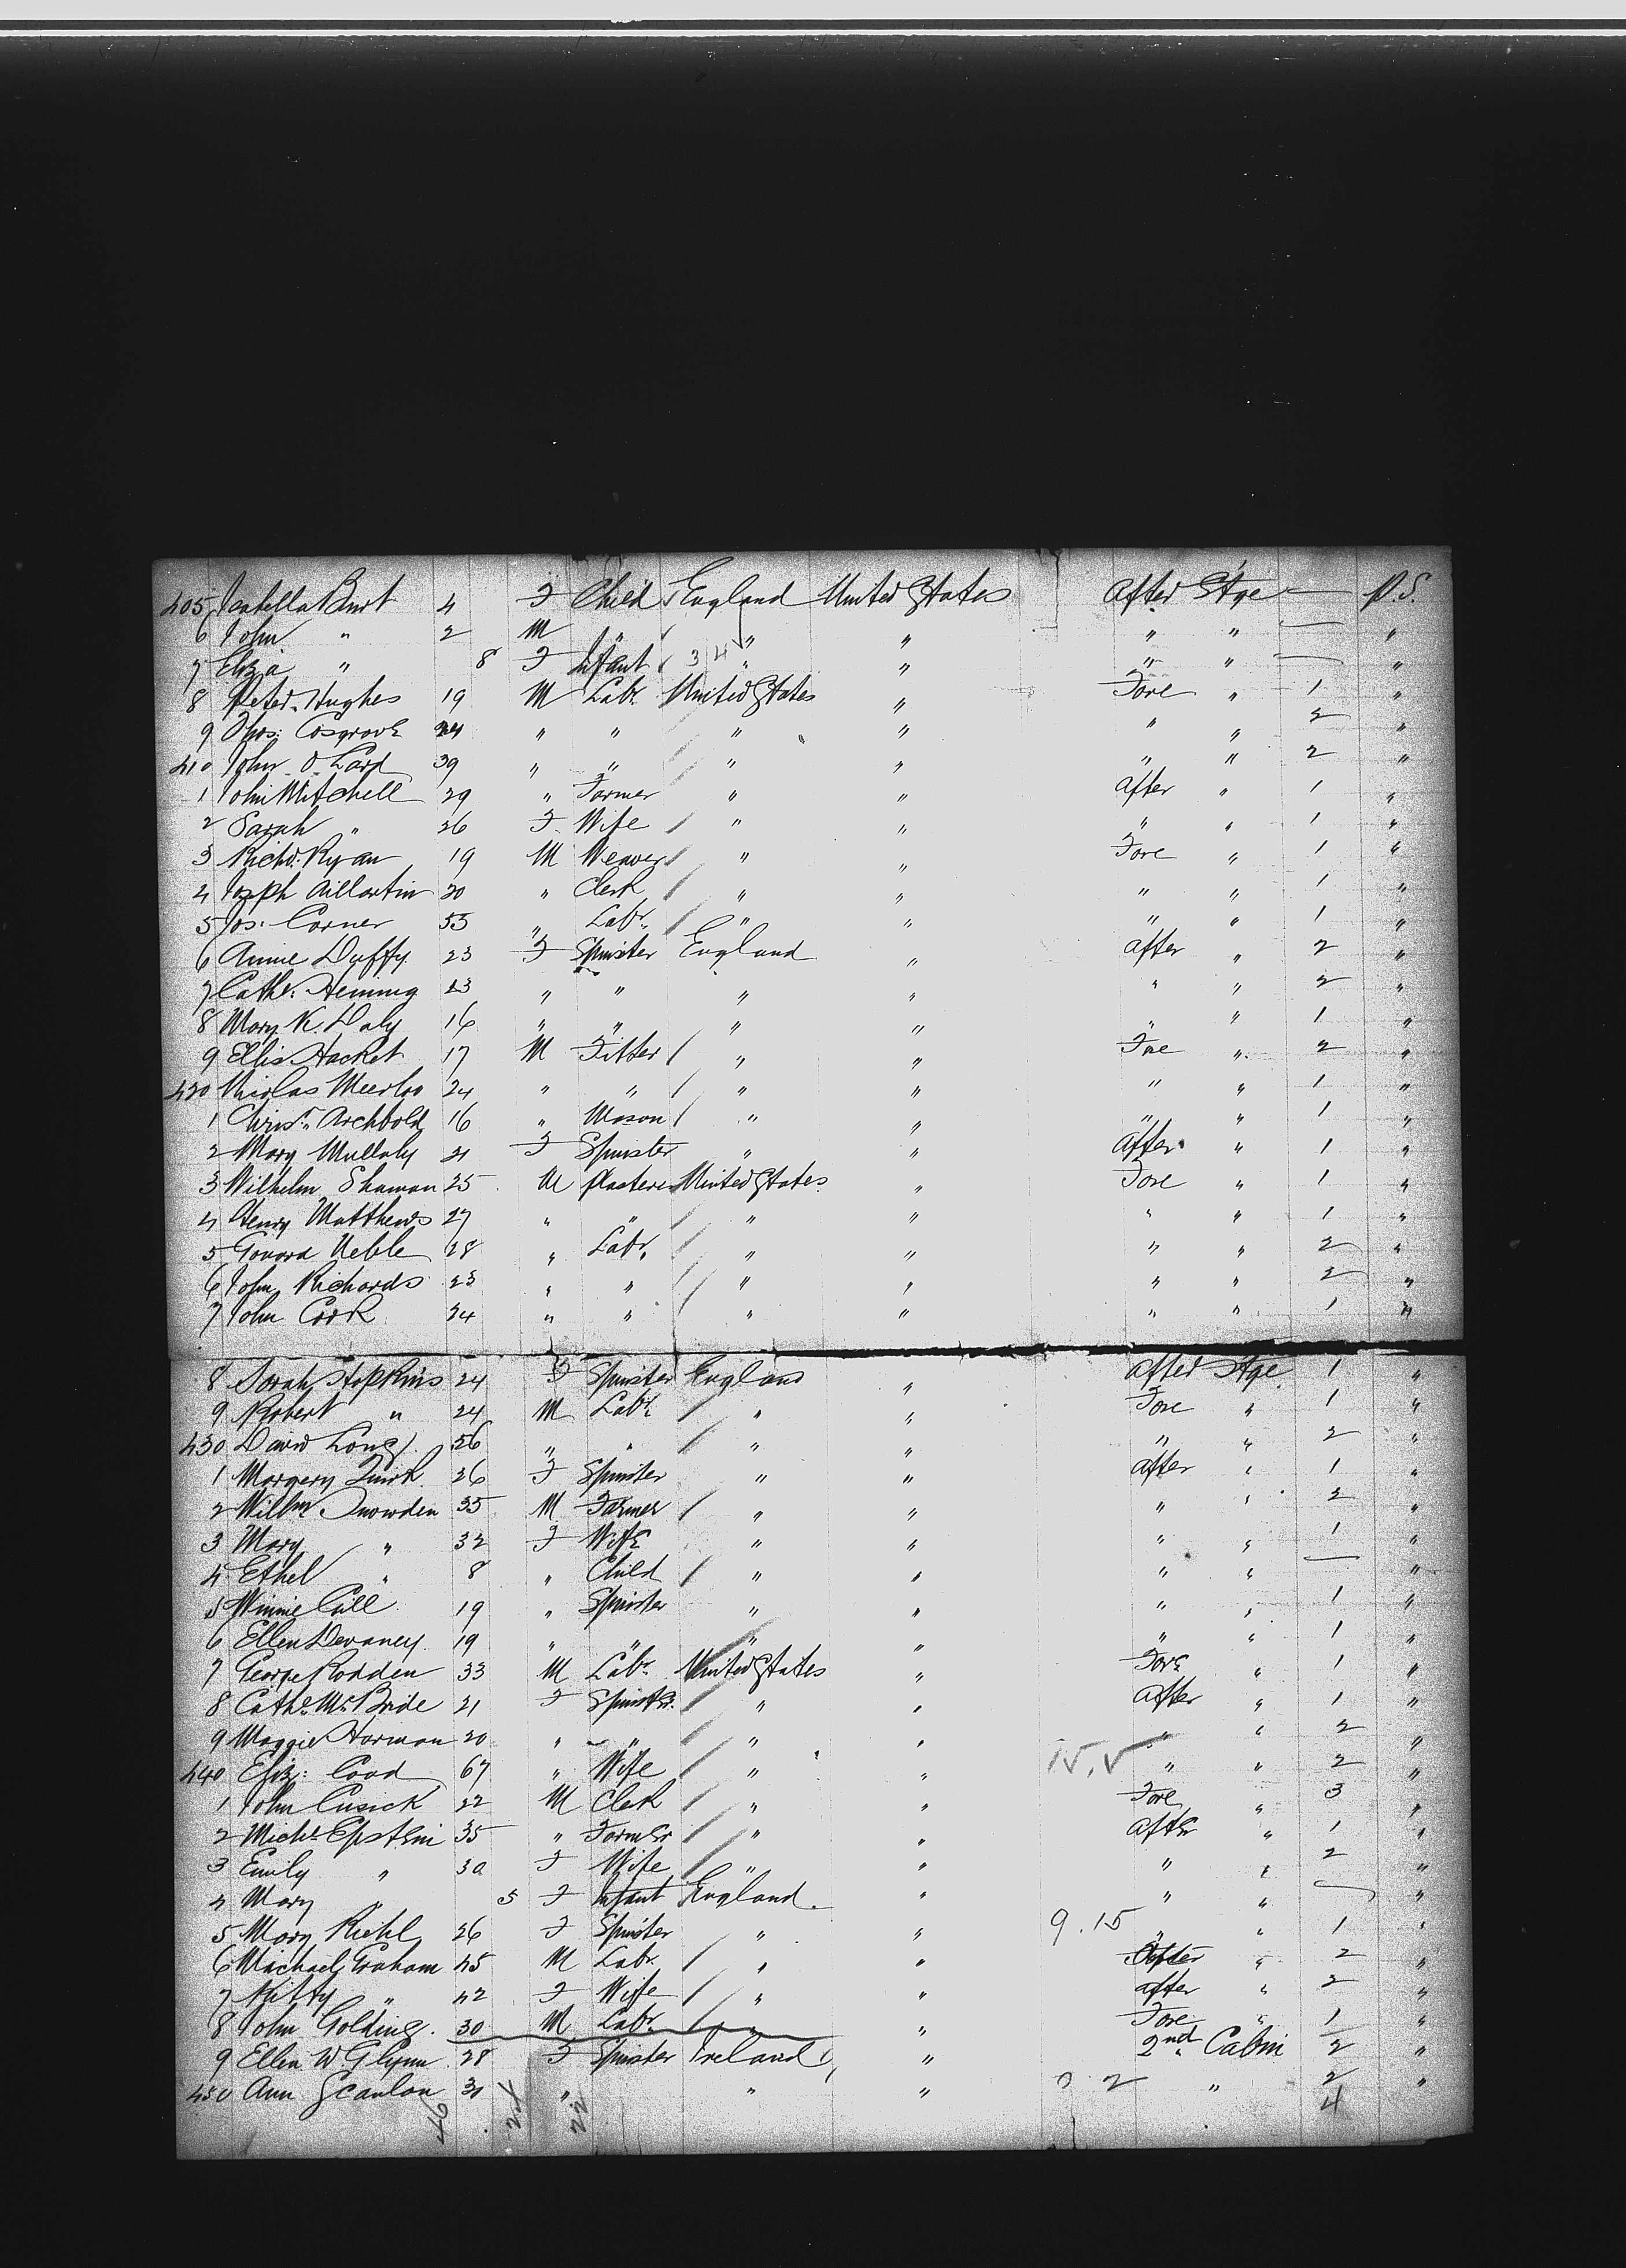 405 Isabella Burt 4 F Child England United States After Stge — P.S.
6 John " 2 M " " " " " — "
7 Eliza " 8 F Infant 3 4 " " " " — "
8 Peter Hughes 19 M Labr. United States " Fore " 1 "
9 Thos. Cosgrove 24 " " " " " " 2 "
410 John O. Lard 39 " " " " " " 2 "
1 John Mitchell 29 " Farmer " " After " 1 "
2 Sarah " 26 F Wife " " " " 1 "
3 Richd. Ryan 19 M Weaver " " Fore " 1 "
4 Joseph 20 " Clerk " " " " 1 "
5 Jos. Corner 53 " Labr. " " " " 1 "
6 Annie Duffy 23 F Spinster England " After " 2 "
7 Cathe. Heming 23 " " " " " " 2 "
8 Mary K. Daly 16 " " " " " " 1 "
9 Ellis Hacket 17 M Fitter " " Fore " 2 "
420 Nicolas 24 " " " " " " 1 "
1 Christr. Archbold 16 " Mason " " " " 1 "
2 Mary Mullaly 21 F Spinster " " After " 1 "
3 Wilhelm Shaman 25 M Plasterer United States " Fore " 1 "
4 Henry Matthews 27 " " " " " " 1 "
5 28 " Labr. " " " " 2 "
6 John Richards 23 " " " " " " 2 "
7 John Cook 24 " " " " " " 1 "
8 Sarah Hopkins 24 F Spinster England " After Stge 1 "
9 Robert " 24 M Labr. " " Fore " 1 "
430 David Long 26 " " " " " " 2 "
1 Margery Quirk 26 F Spinster " " After " 1 "
2 Willm. Snowden 35 M Farmer " " " " 2 "
3 Mary " 32 F Wife " " " " 1 "
4 Ethel " 8 " Child " " " " — "
5 Winnie Cill 19 " Spinster " " " " 1 "
6 Ellen Devaney 19 " " " " " " 1 "
7 George Rodden 33 M Labr. United States " Fore " 1 "
8 Cathe. McBride 21 F Spinster " " After " 1 "
9 Maggie Harman 20 " " " " " " 2 "
440 Eliz: Coad 67 " Wife " " " " 2 "
1 John Cusick 22 M Clerk " " Fore " 3 "
2 Michl. Epstein 35 " Farmer " " After " 1 "
3 Emily " 30 F Wife " " " " 2 "
4 Mary " 5 F Infant England " " " — "
5 Mary Riehl 26 F Spinster " " 9.15 " " 1 "
6 Michael Graham 45 M Labr. " " After " 2 "
7 Kitty " 42 F Wife " " After " 2 "
8 John Golding 30 M Labr. " " Fore " 1 "
9 Ellen W Glynn 28 F Spinster Ireland " 2nd Cabin 2 "
450 Ann Scanlon 30 " " " 2 " 2 "
46 24 22 4